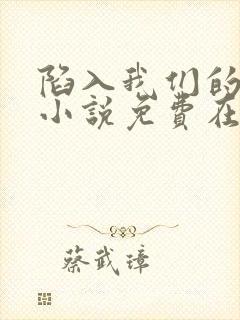 陷入我们的
小说免费在
蔡武璋